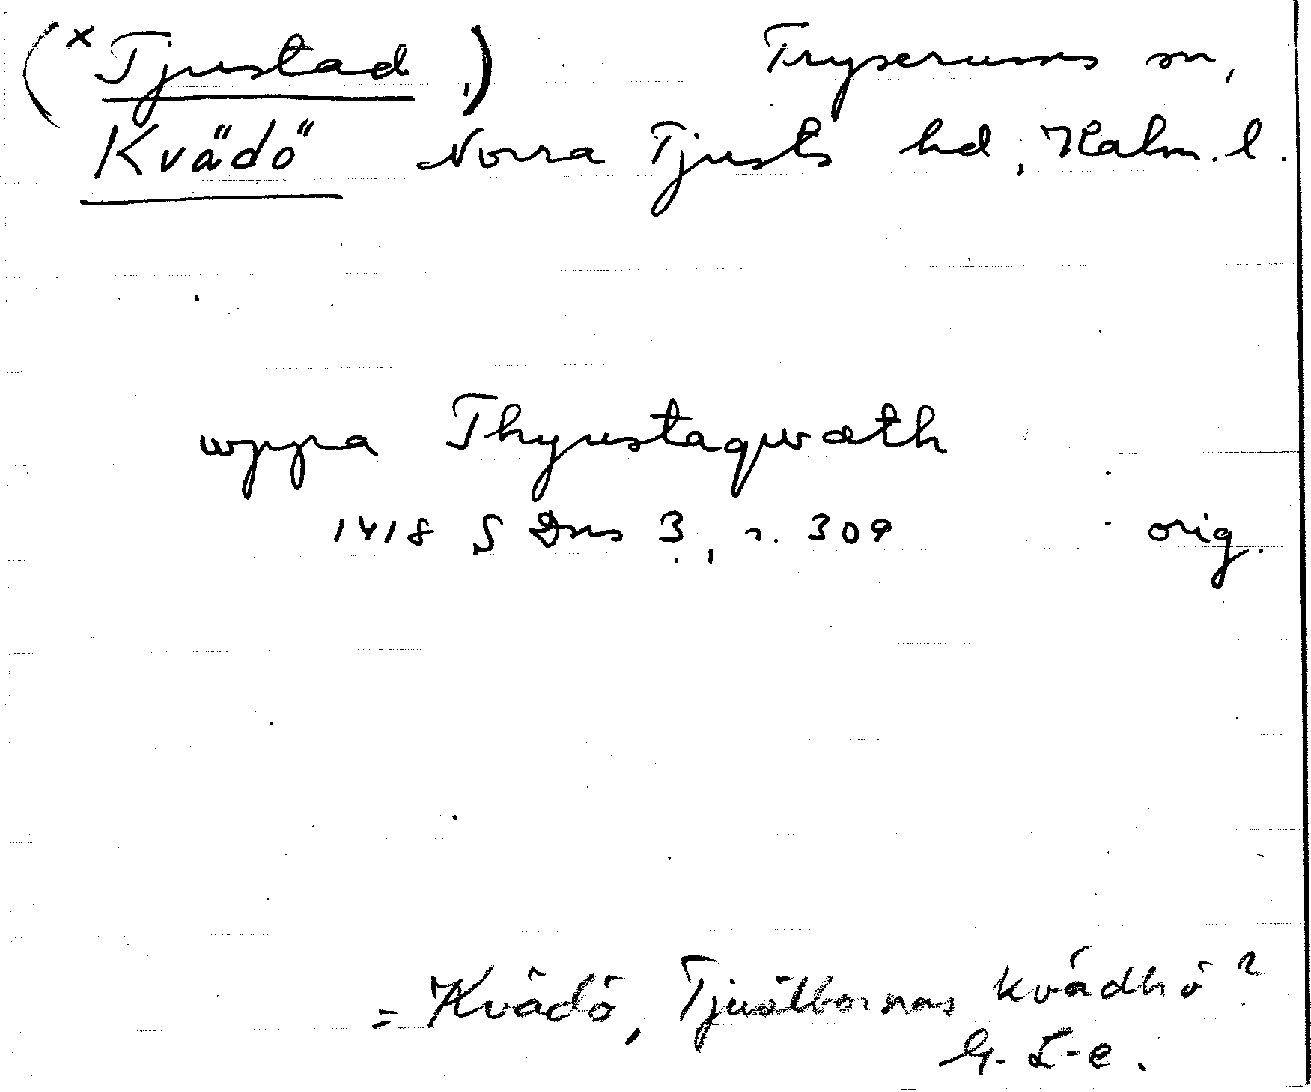 (× Tjustad,) Tryserums sn,
Kvädö Norra Tjusts hd, Kalm. l.
uppa Thyustaqwæth
1418 S Dns 3, s. 309 orig.
= Kvädö, Tjustbornas kvädhö?
G. F-e.